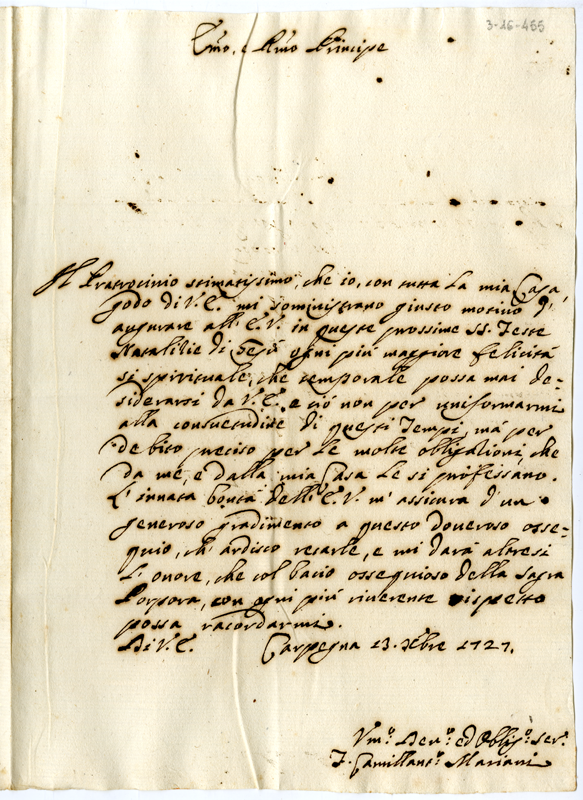 3-16-455
Emo, e Rmo Principe
Il Pratrocinio stimatissimo, che io, con tutta la mia Casa
godo di V. E. mi soministrano giusto motivo d'
augurare all' E. V. in queste prossime SS. Feste
Natalitie di Gesù ogni più maggiore felicità
si spirituale, che temporale possa mai de-
siderarsi da V. E. e ciò non per uniformarmi
alla consuetudine di questi Tempi, mà per
debito preciso per le molte obligationi, che
da me, e dalla mia Casa le si professano.
L' innata bontà dell' E. V. m' assicura d' un
generoso gradimento a questo doveroso osse-
quio, ch' ardisco recarle, e mi darà altresi
l' onore, che col bacio ossequioso della Sagra
Porpora, con ogni più riverente rispetto
possa racordarmi.
Di V. E. Carpegna 13. Xbre 1727.
Vmo. Devo. ed Obligo. ser.
Mariani